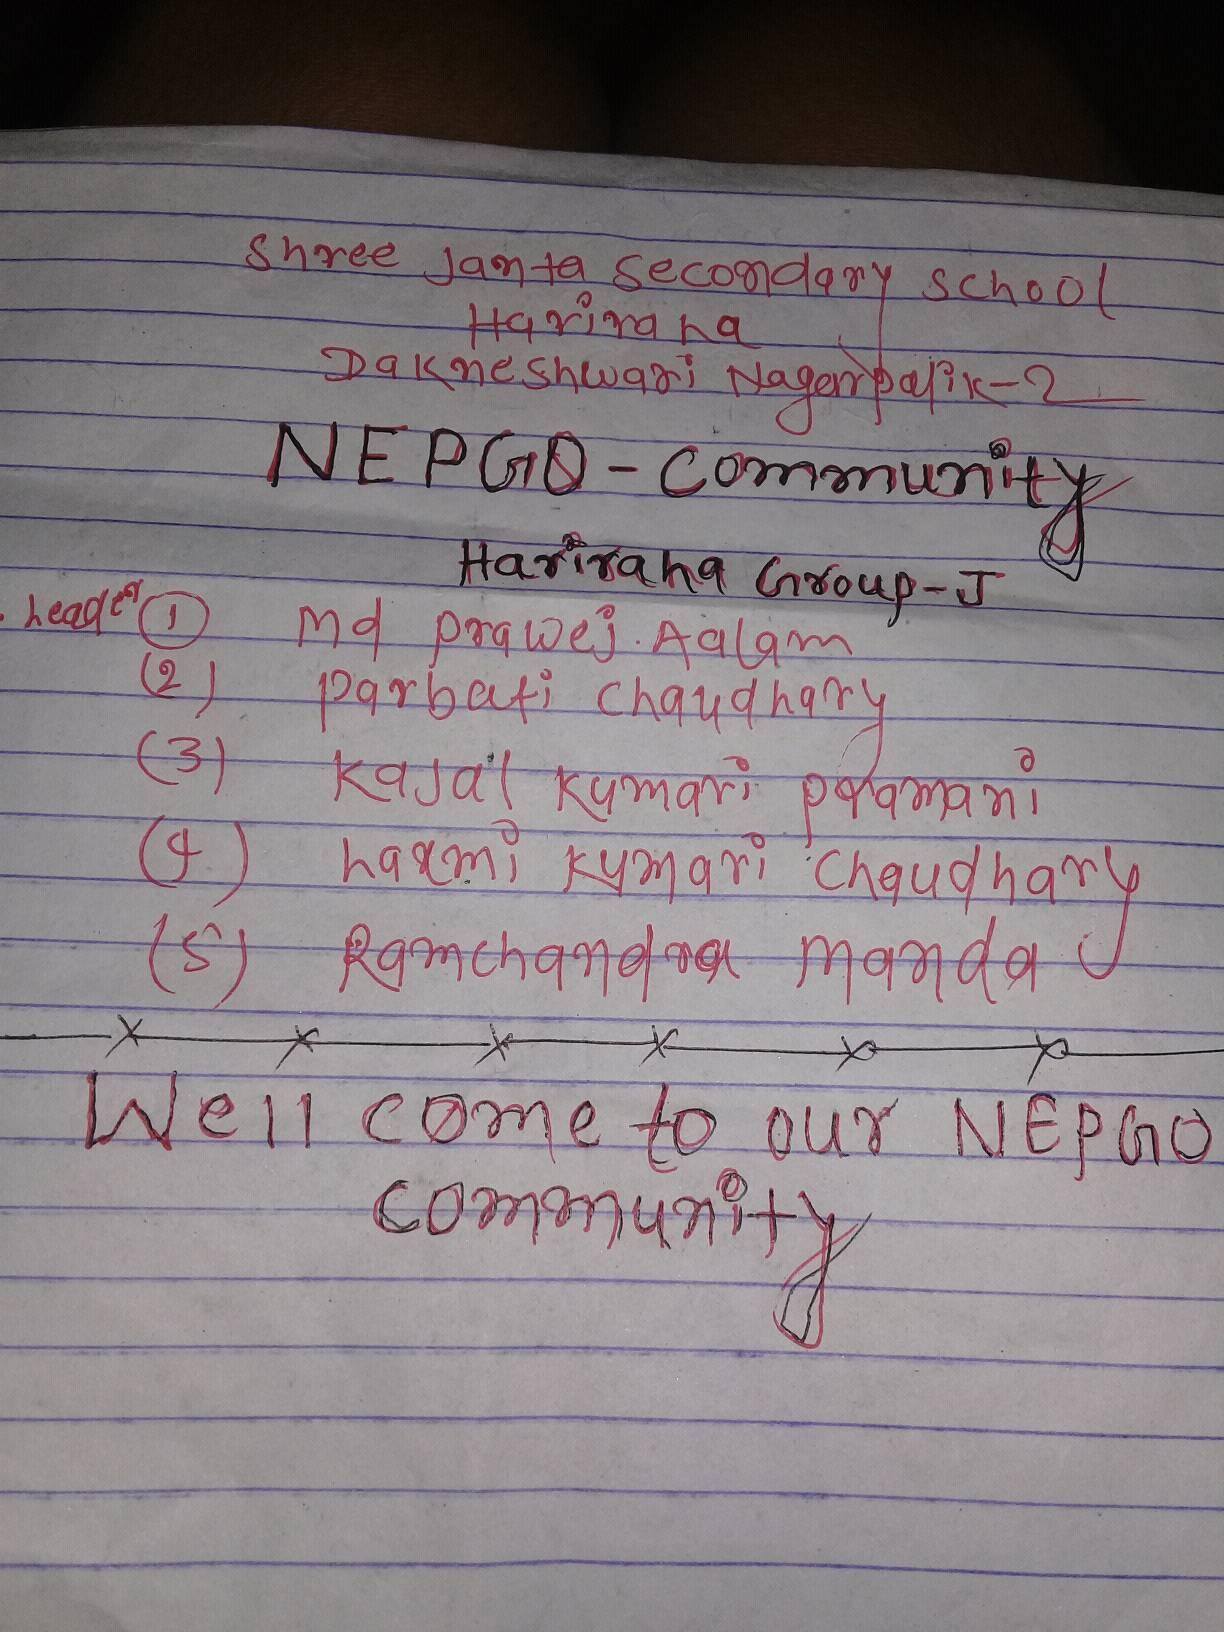 Shree Janta Secondary School
Hariraha
Dakneshwari Nagerpalik-2
NEPGO-Community
Hariraha Group-J
Leader (1) Md Prawej Aalam
(2) Parbati Chaudhary
(3) Kajal Kumari Pramani
(4) Laxmi Kumari Chaudhary
(5) Ramchandra Manda
Well come to our NEPGO
Community